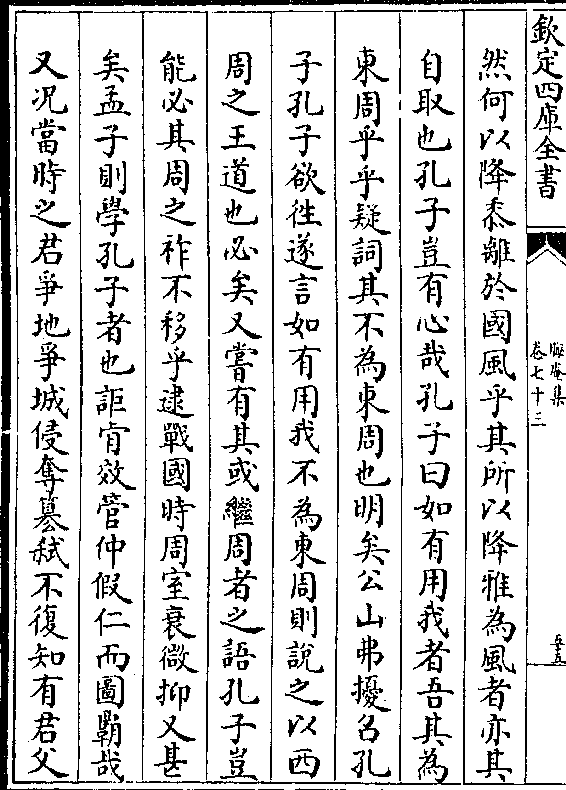 欽定四庫全書
晦庵集
卷七十三
五十五
然何以降黍離於國風乎其所以降雅為風者亦其
自取也孔子豈有心哉孔子曰如有用我者吾其為
東周乎乎疑詞其不為東周也明矣公山弗擾召孔
子孔子欲徃遂言如有用我不為東周則說之以西
周之王道也必矣又嘗有其或繼周者之語孔子豈
能必其周之祚不移乎逮戰國時周室衰微抑又甚
矣孟子則學孔子者也詎肯效管仲假仁而圖霸哉
又况當時之君爭地爭城侵奪簒弑不復知有君父